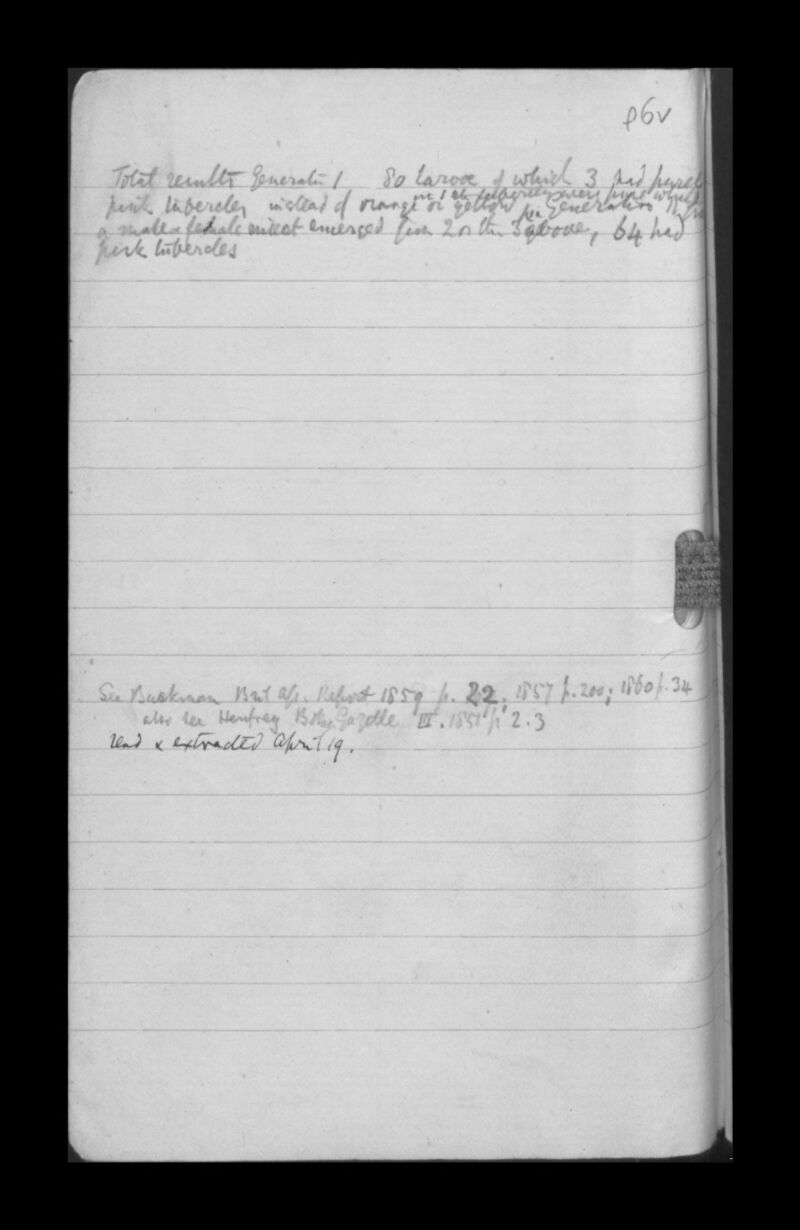 p6v
Total results Generation 1 80 larvae of which 3 had
pink tubercles instead of orange or yellow in generation
a male & female insect emerged from 2 of the 3 above, 64 had
pink tubercles
See Buckman Brit Ass. Report 1859 p. 22, 1857 p. 200; 1860 p. 34
also see Henfrey Bot. Gazette III. 1851 p. 2.3
read & extracted April 19.